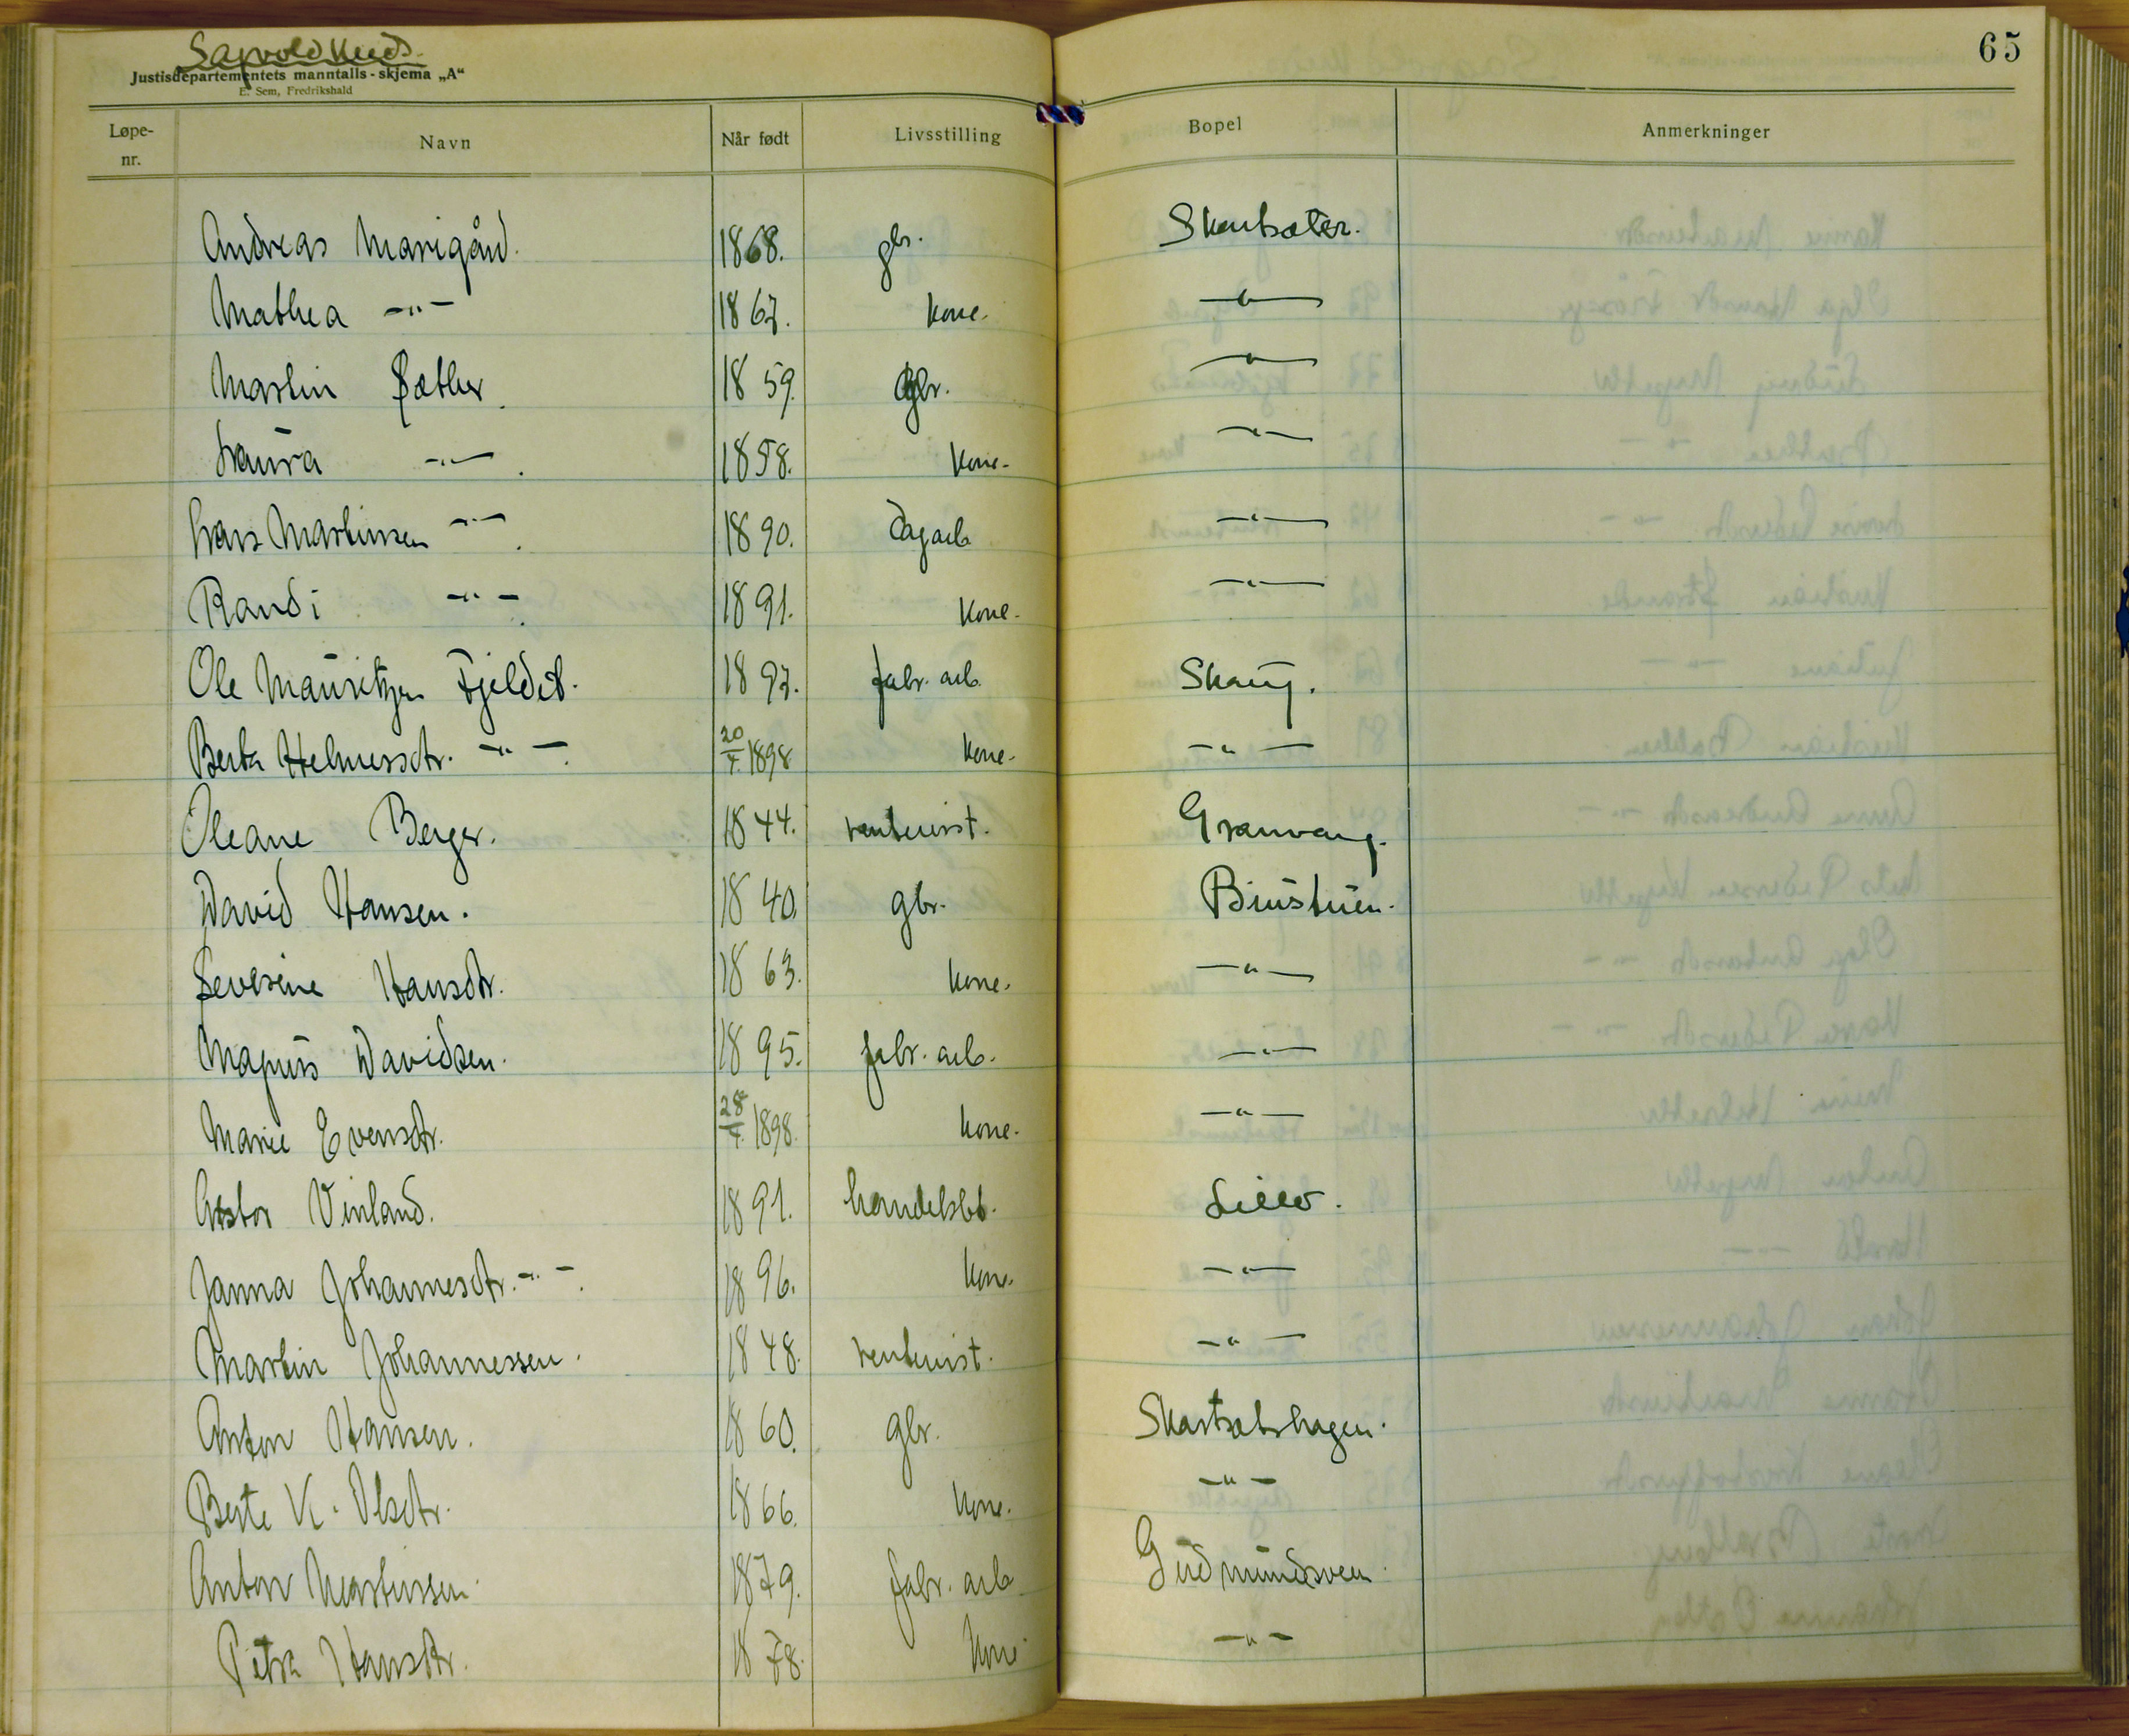 65
Justisdepartementets manntalls-skjema „A“
E. Sem, Fredrikshald
Løpe-nr. Navn Når født Livsstilling Bopel Anmerkninger
Andreas Marigård. 1868. gbr.
Mathea -"- 1867. kone. -"-
Martin Sæther. 1859. gbr. -"-
Laura -"-. 1858. kone. -"-
Lars Martinsen -"-. 1890. Dagarb -"-
Randi -"-. 1891. kone. -"-
Ole Mauritzen Fjeldet. 1897. fabr. arb. Skaug.
Berta Helmersdtr. -"-. 20/7. 1898 kone. -"-
Oleane Berger. 1844. rentenist. Granvang.
David Hansen. 1840. gbr.
Severine Hansdtr. 1863. kone. -"-
Magnus Davidsen. 1895. fabr. arb. -"-
Marie Evensdtr. 1898. kone. -"-
Astor Vinland. 1891. handelsbt.
Janna Johannesdtr. -"-. 1896. kone. -"-
Martin Johannessen. 1848. rentenist. -"-
Anton Hansen. 1860. gbr.
Berte K. Olsdtr. 1866. kone. -"-
Anton Martinsen. 1879. fabr. arb Gudmundsveen.
Petra Hansdtr. 1878. kone -"-